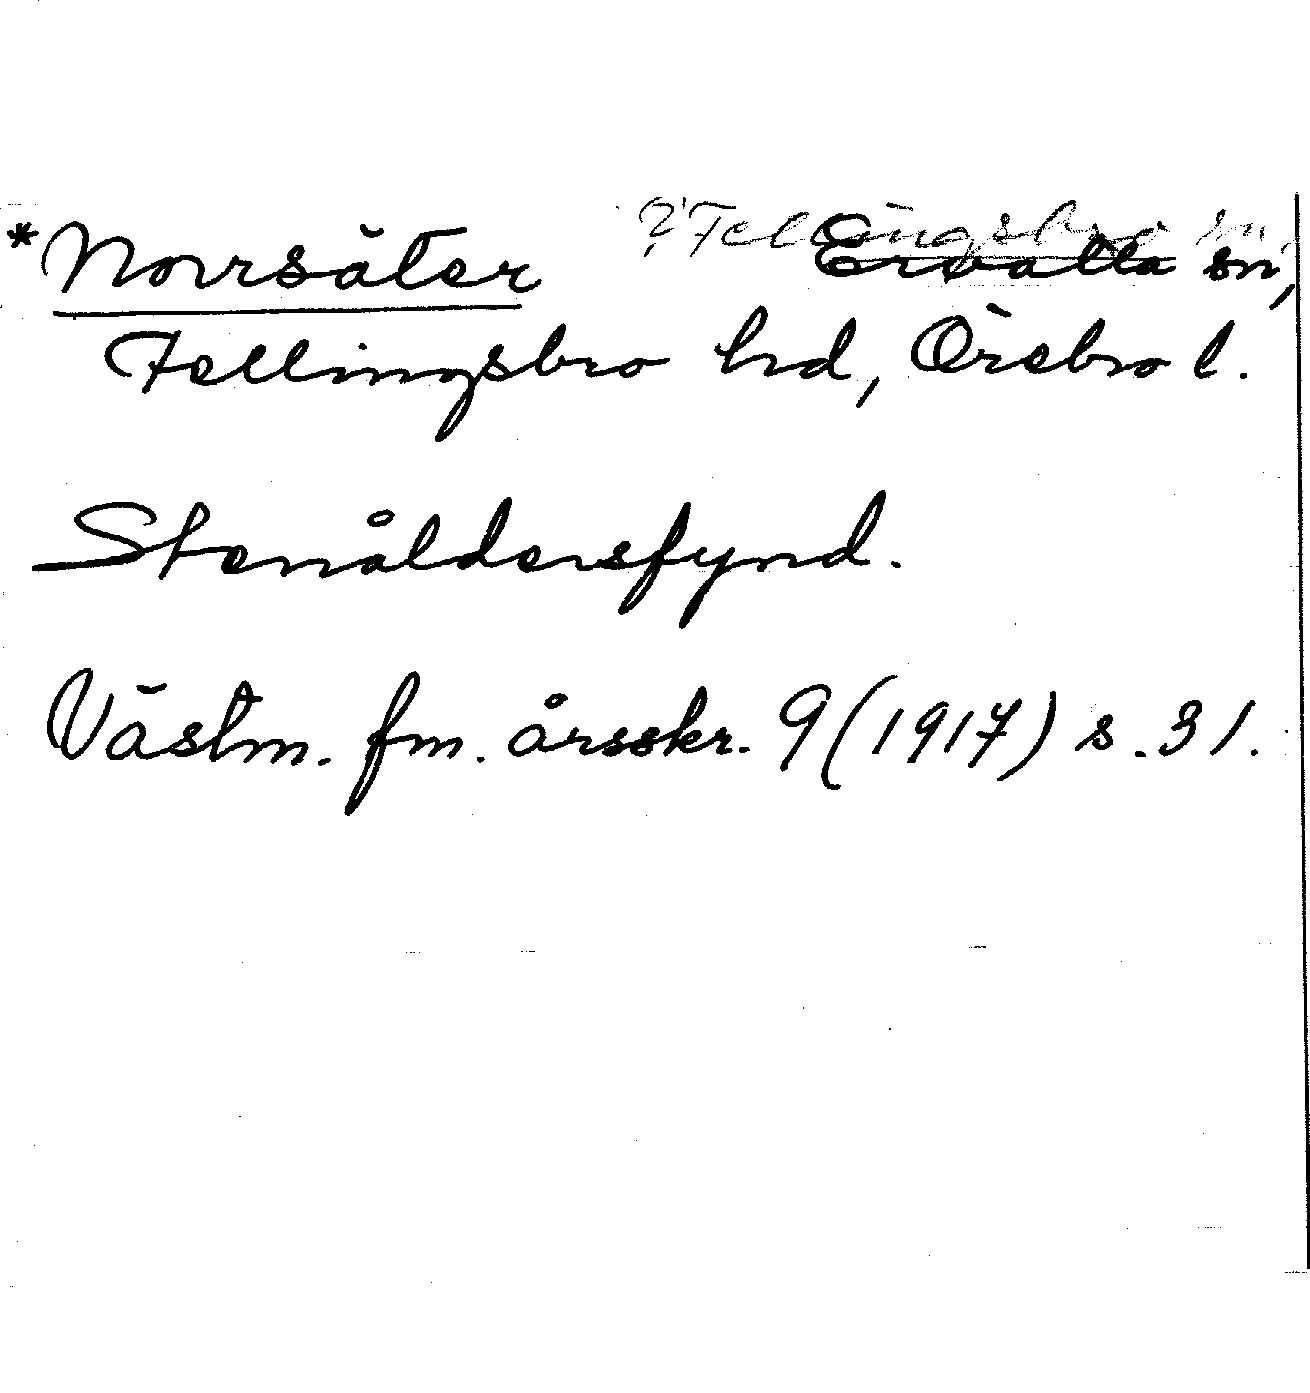 ?Fellingsbro sn,
*Norrsäter Ervalla sn,
Fellingsbro hd, Örebro l.
Stenåldersfynd.
Västm. fm. årsskr. 9 (1917) s. 31.